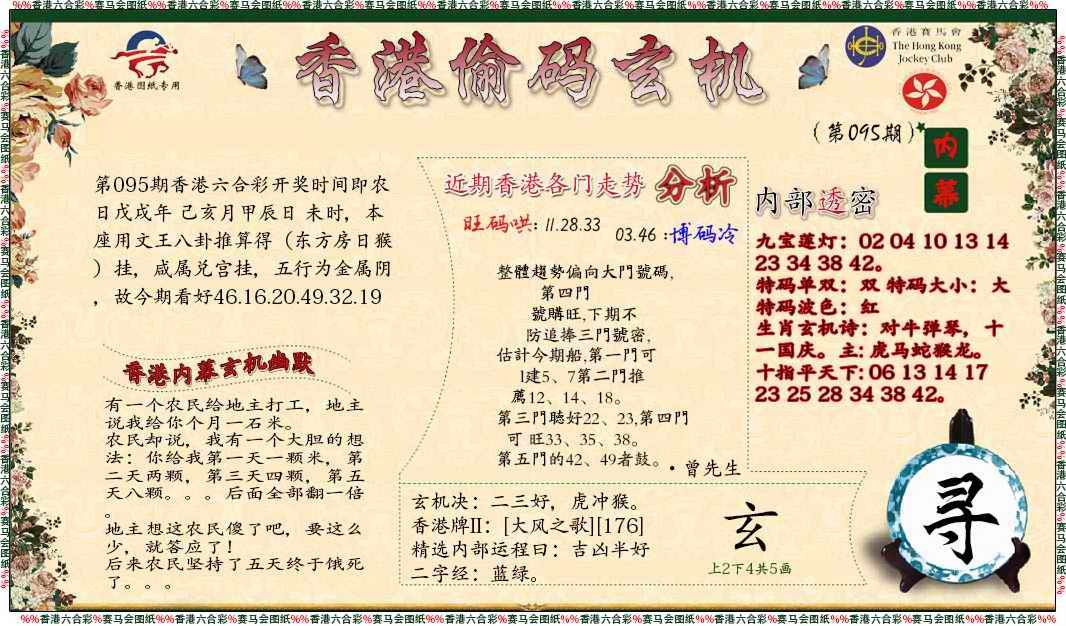 %%香港六合彩%赛马会图纸%%香港六合彩%赛马会图纸%%香港六合彩%赛马会图纸%%香港六合彩%赛马会图纸%%香港六合彩%赛马会图纸%%香港六合彩%赛马会图纸%%香港六合彩%%
香港图纸专用
香港偷码玄机
香港賽馬會
The Hong Kong
Jockey Club
(第095期)
内
幕
第095期香港六合彩开奖时间即农
日戊戌年 己亥月甲辰日 未时，本
座用文王八卦推算得（东方房日猴
）挂，咸属兑宫挂，五行为金属阴
，故今期看好46.16.20.49.32.19
香港内幕玄机幽默
有一个农民给地主打工，地主
说我给你个月一石米。
农民却说，我有一个大胆的想
法：你给我第一天一颗米，第
二天两颗，第三天四颗，第五
天八颗。。。后面全部翻一倍
。
地主想这农民傻了吧，要这么
少，就答应了！
后来农民坚持了五天终于饿死
了。。。
近期香港各门走势 分析
旺码哄: 11.28.33
03.46 :博码冷
整體趨勢偏向大門號碼,
第四門
號購旺,下期不
防追捧三門號密,
估計今期船,第一門可
l建5、7第二門推
薦12、14、18。
第三門聴好22、23,第四門
可 旺33、35、38。
第五門的42、49者鼓。
·曾先生
内部透密
九宝莲灯：02 04 10 13 14
23 34 38 42。
特码单双：双 特码大小：大
特码波色：红
生肖玄机诗：对牛弹琴，十
一国庆。主: 虎马蛇猴龙。
十指平天下: 06 13 14 17
23 25 28 34 38 42。
玄机决：二三好，虎冲猴。
香港牌II：[大风之歌][176]
精选内部运程曰：吉凶半好
二字经：蓝绿。
玄
上2下4共5画
寻
%%香港六合彩%赛马会图纸%%香港六合彩%赛马会图纸%%香港六合彩%赛马会图纸%%香港六合彩%赛马会图纸%%香港六合彩%赛马会图纸%%香港六合彩%赛马会图纸%%香港六合彩%%